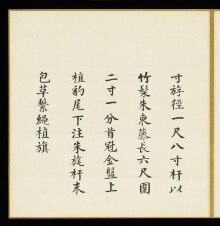 寸斿徑一尺八寸杆以
竹髹朱束藤長六尺圍
二寸一分首冠金盤上
植豹尾下注朱旄杆末
包草繫繩植旗